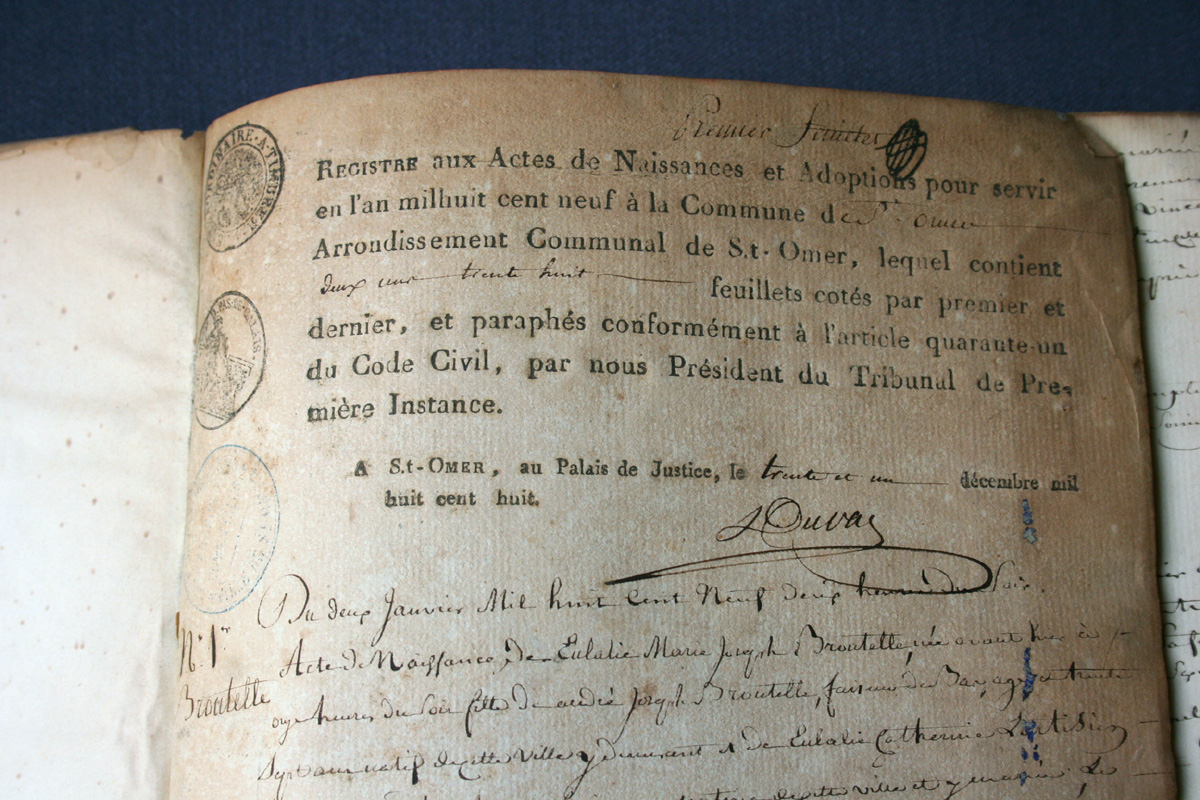 Premier feuillet
REGISTRE aux Actes de Naissances et Adoptions pour servir
en l'an milhuit cent neuf à la Commune de St. omer
Arrondissement Communal de S.t-Omer, lequel contient
deux cent trente huit feuillets cotés par premier et
dernier, et paraphés conformément à l'article quarante-un
du Code Civil, par nous Président du Tribunal de Pre-
mière Instance.
A S.t-OMER, au Palais de Justice, le trente et un décembre mil
huit cent huit.
Duval
Du deux Janvier Mil huit Cent Neuf deux heures du Soir.
N.° 1.er
Broutelle
Acte de Naissance de Eulalie Marie Joseph Broutelle, née avant hier à
onze heures du Soir fille de andré Joseph Broutelle, faiseur de Bas, agé de trente
Sept ans natif de cette ville y demeurant & de Eulalie Catherine
de cette ville et y mariés, Le